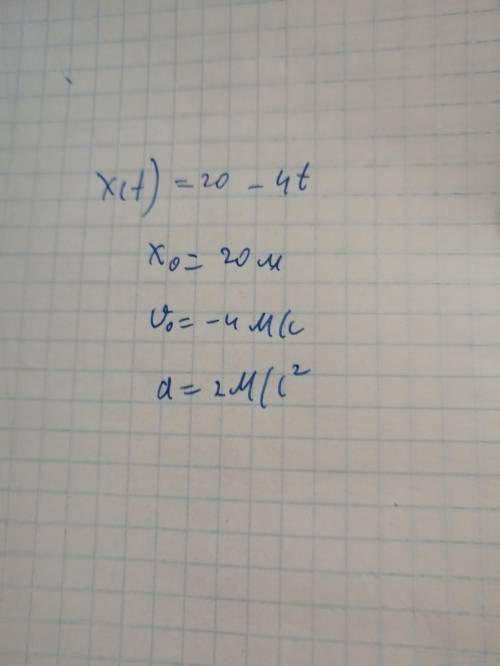 x(t) = 20 - 4t
x₀ = 20 м
v₀ = -4 м/с
a = 2 м/с²